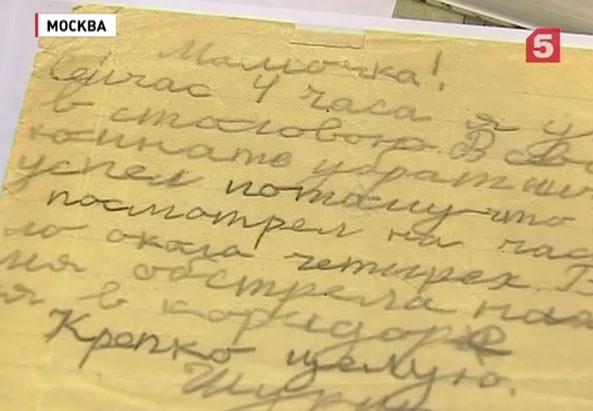 МОСКВА
5
Мамочка!
Сейчас 4 часа я у
в столовую. В сво
комнате убрат не
успел потому что
посмотрел на час
ло около четырех.
ня обстрела
я в коридоре
Крепко целую.
Шур